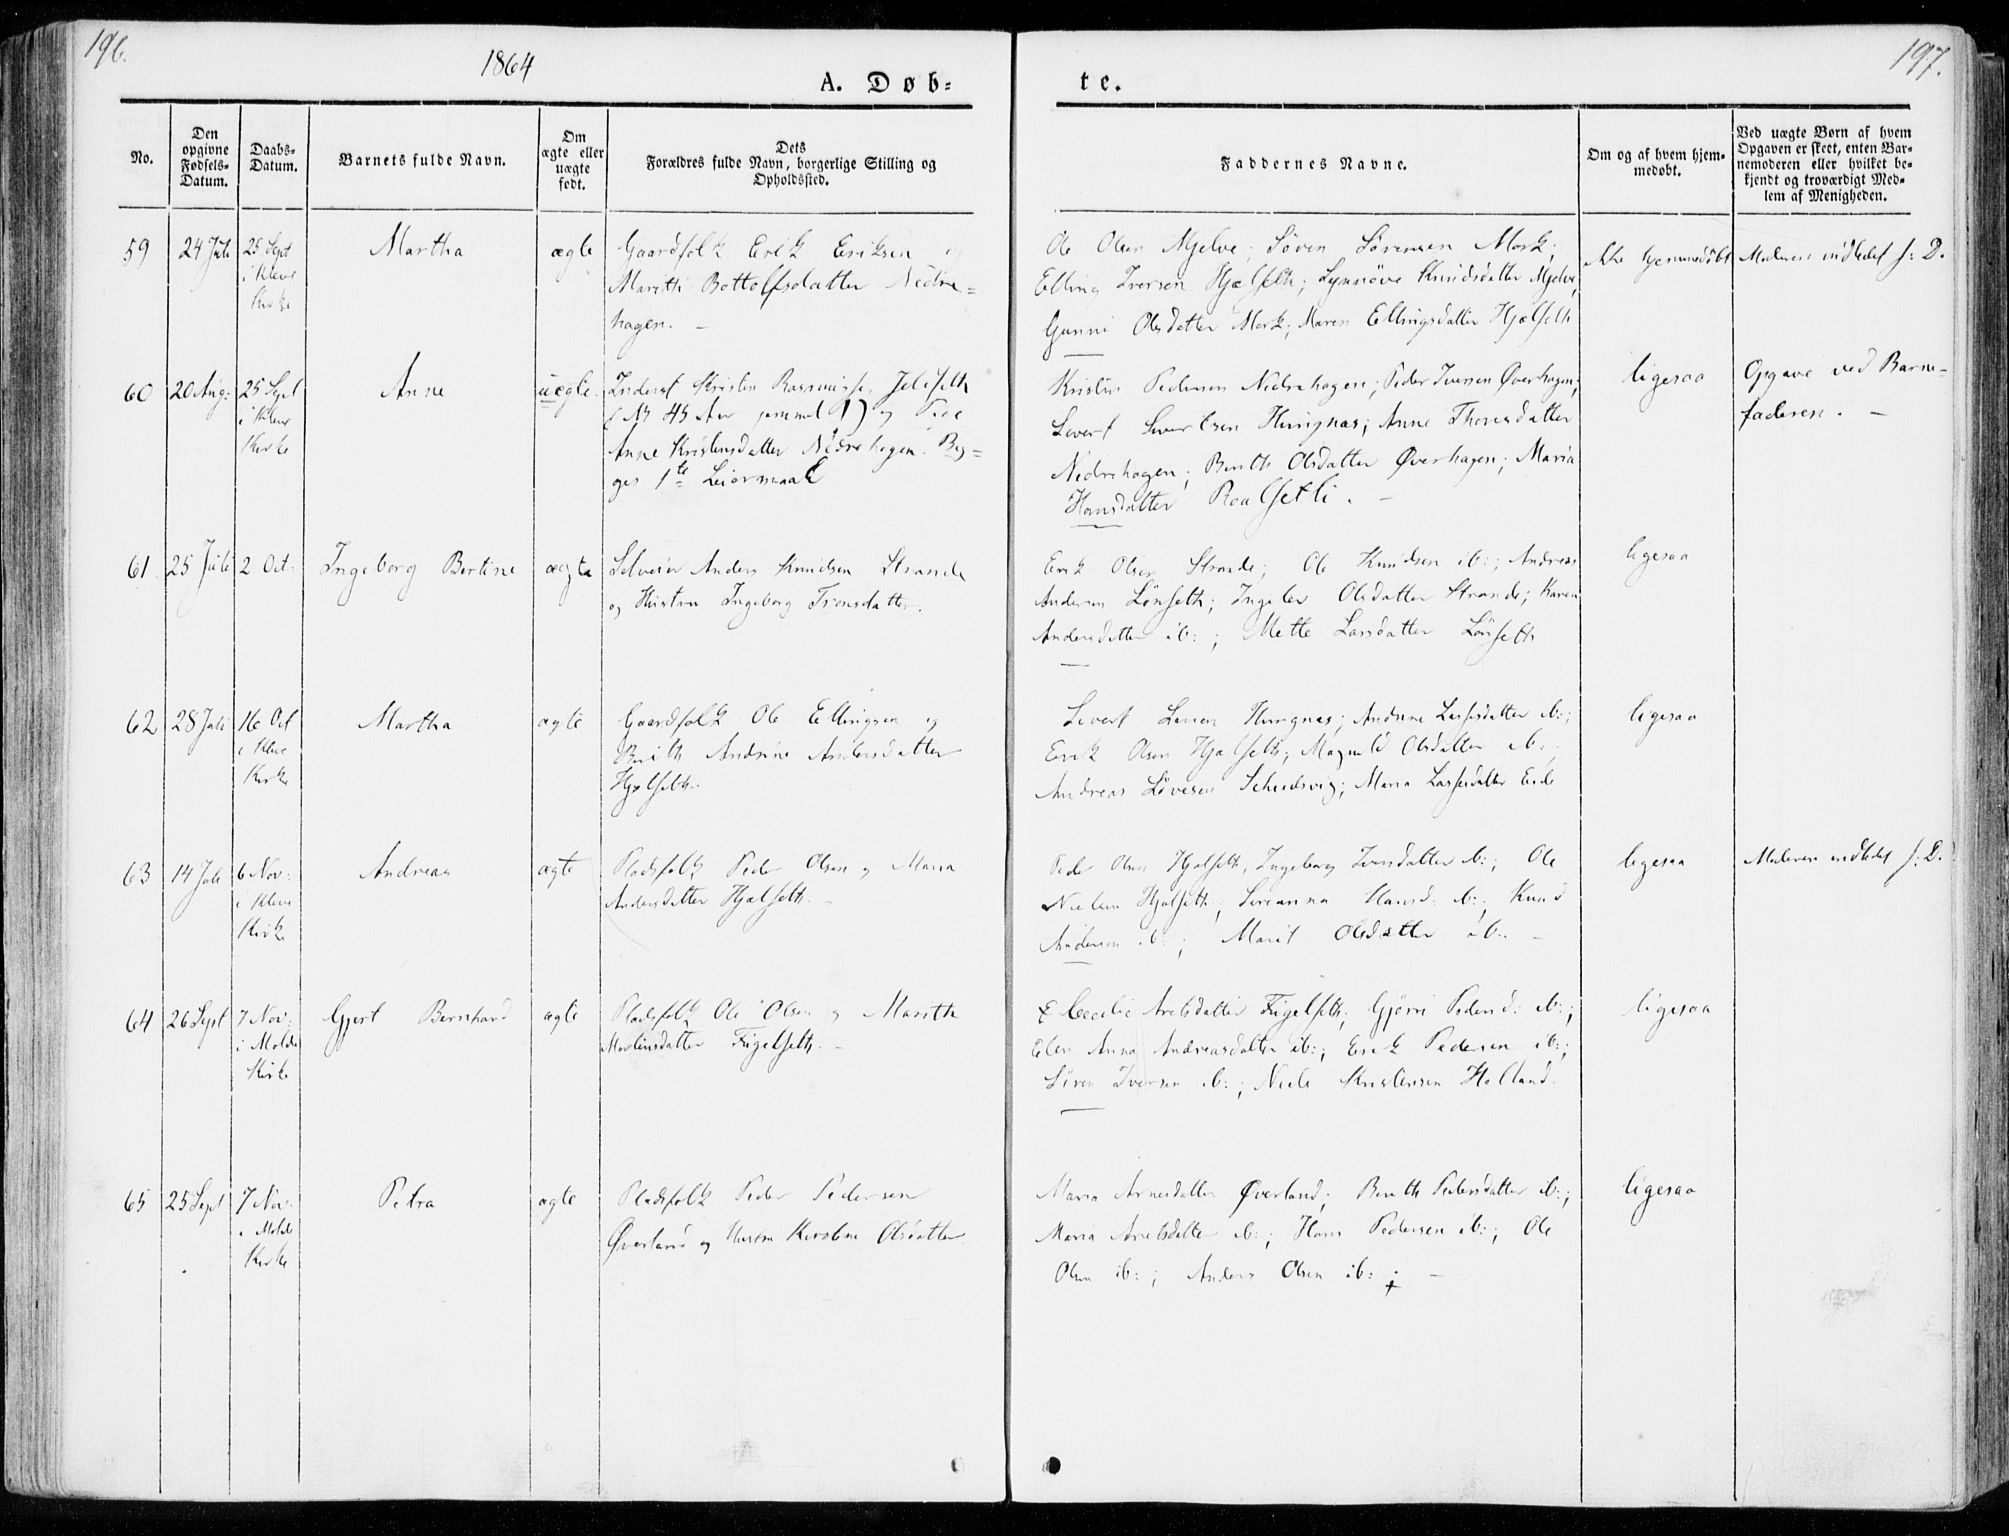 196.
1864
A. Døb=
te.
197.
No.
Den opgivne Fødsels-Datum.
Daabs-Datum.
Barnets fulde Navn.
Om ægte eller uægte født.
Dets Forældres fulde Navn, borgerlige Stilling og Opholdssted.
Faddernes Navne.
Om og af hvem hjemmedøbt.
Ved uægte Børn af hvem Opgaven er skeet, enten Barnemoderen eller hvilket bekjendt og troværdigt Medlem af Menigheden.
59 24 Juli 25 Sept i Kleve Kirke Martha ægte
Gaardfolk Erik Eriksen og
Marith Bottolfsdatter Nedre=
hagen. –
Ole Olsen Mjelve; Søren Sørensen Mork;
Elling Iversen Hjelseth; Synnøve Knudsdatter Mjelve,
Gunni Olsdatter Mork; Maren Ellingsdatter Hjelseth
ikke hjemmedøbt
Moderen indledet s: D.
60 20 Aug: 25 Sept i Kleve Kirke Anne uægte.
Inderst Kristen Rasmus Jelseth
(No 43 Aar gammel) og Pige
Anne Kristensdatter Nedrehagen. Beg=
ges 1te Leiermaal
Kristen Pedersen Nedrehagen; Peder Iversen Øverhagen;
Sivert Sivertsen Hungnæs; Anne Thomsdatter
Nedrehagen; Berith Olsdatter Øverhagen; Maria
Hansdatter Roalsetli. –
ligesaa
Opgave ved Barne=
faderen. –
61. 25 Juli 2 Oct: Ingeborg Bertine ægte
Selveier Anders Knudsen Strande
og Hustru Ingeborg Tronsdatter.
Erik Olsen Strande; Ole Knudsen ib:; Andreas
Andersen Lønseth; Ingeber Olsdatter Strande; Karen
Andersdatter ib:; Mette Larsdatter Lønseth
ligesaa
62 28 Juli 16 Oct i Kleve Kirke Martha ægte
Gaardfolk Ole Ellingsen og
Berith Andrine Andersdatter
Hjelseth.
Sivert Larsen Hungnæs; Andrine Lassesdatter ib:;
Erik Olsen Hjelseth; Magnild Olsdatter ib:;
Andreas; Maria Lassesdatter Eide
ligesaa
63 14 Juli 6 Nov: i Kleve Kirke Andreas ægte
Pladsfolk Peder Olsen og Maria
Andersdatter Hjelseth. –
Peder Olsen Hjelseth; Ingeborg Iversdatter ib:; Ole
Nielsen Hjelseth; Sirianna Hansd: ib:; Knud
Andersen ib:; Marit Olsdatter ib. –
ligesaa
Moderen indledet s: D.
64 26 Sept 7 Nov: i Molde Kirke Gjert Bernhard ægte
Pladsfolk Ole Olsen og Marith
Martinsdatter Figelseth. –
Cecilie Arelsdatter Figelseth; Gjøren Pedersd: ib:;
Elen Anna Andreasdatter ib:; Erik Pedersen ib:;
Søren Iversen ib:; Niels Kristensen Holland.
ligesaa
65 25 Sept 7 Nov: i Molde Kirke Petra ægte
Pladsfolk Peder Pedersen
Øverland og Hustru Kirstine Olsdatter
Maria Arnesdatter Øverland; Berith Pedersdatter ib:;
Maria Arelsdatter ib:; Hans Pedersen ib:; Ole
Olsen ib:; Anders Olsen ib: ; –
ligesaa